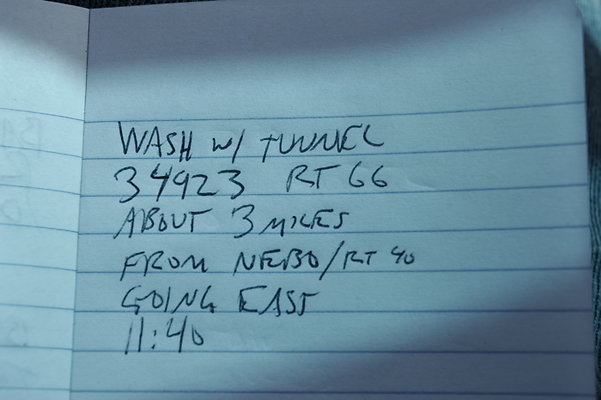 WASH W/ TUNNEL
34923 RT 66
ABOUT 3 MILES
FROM NEBO/RT 40
GOING EAST
11:40